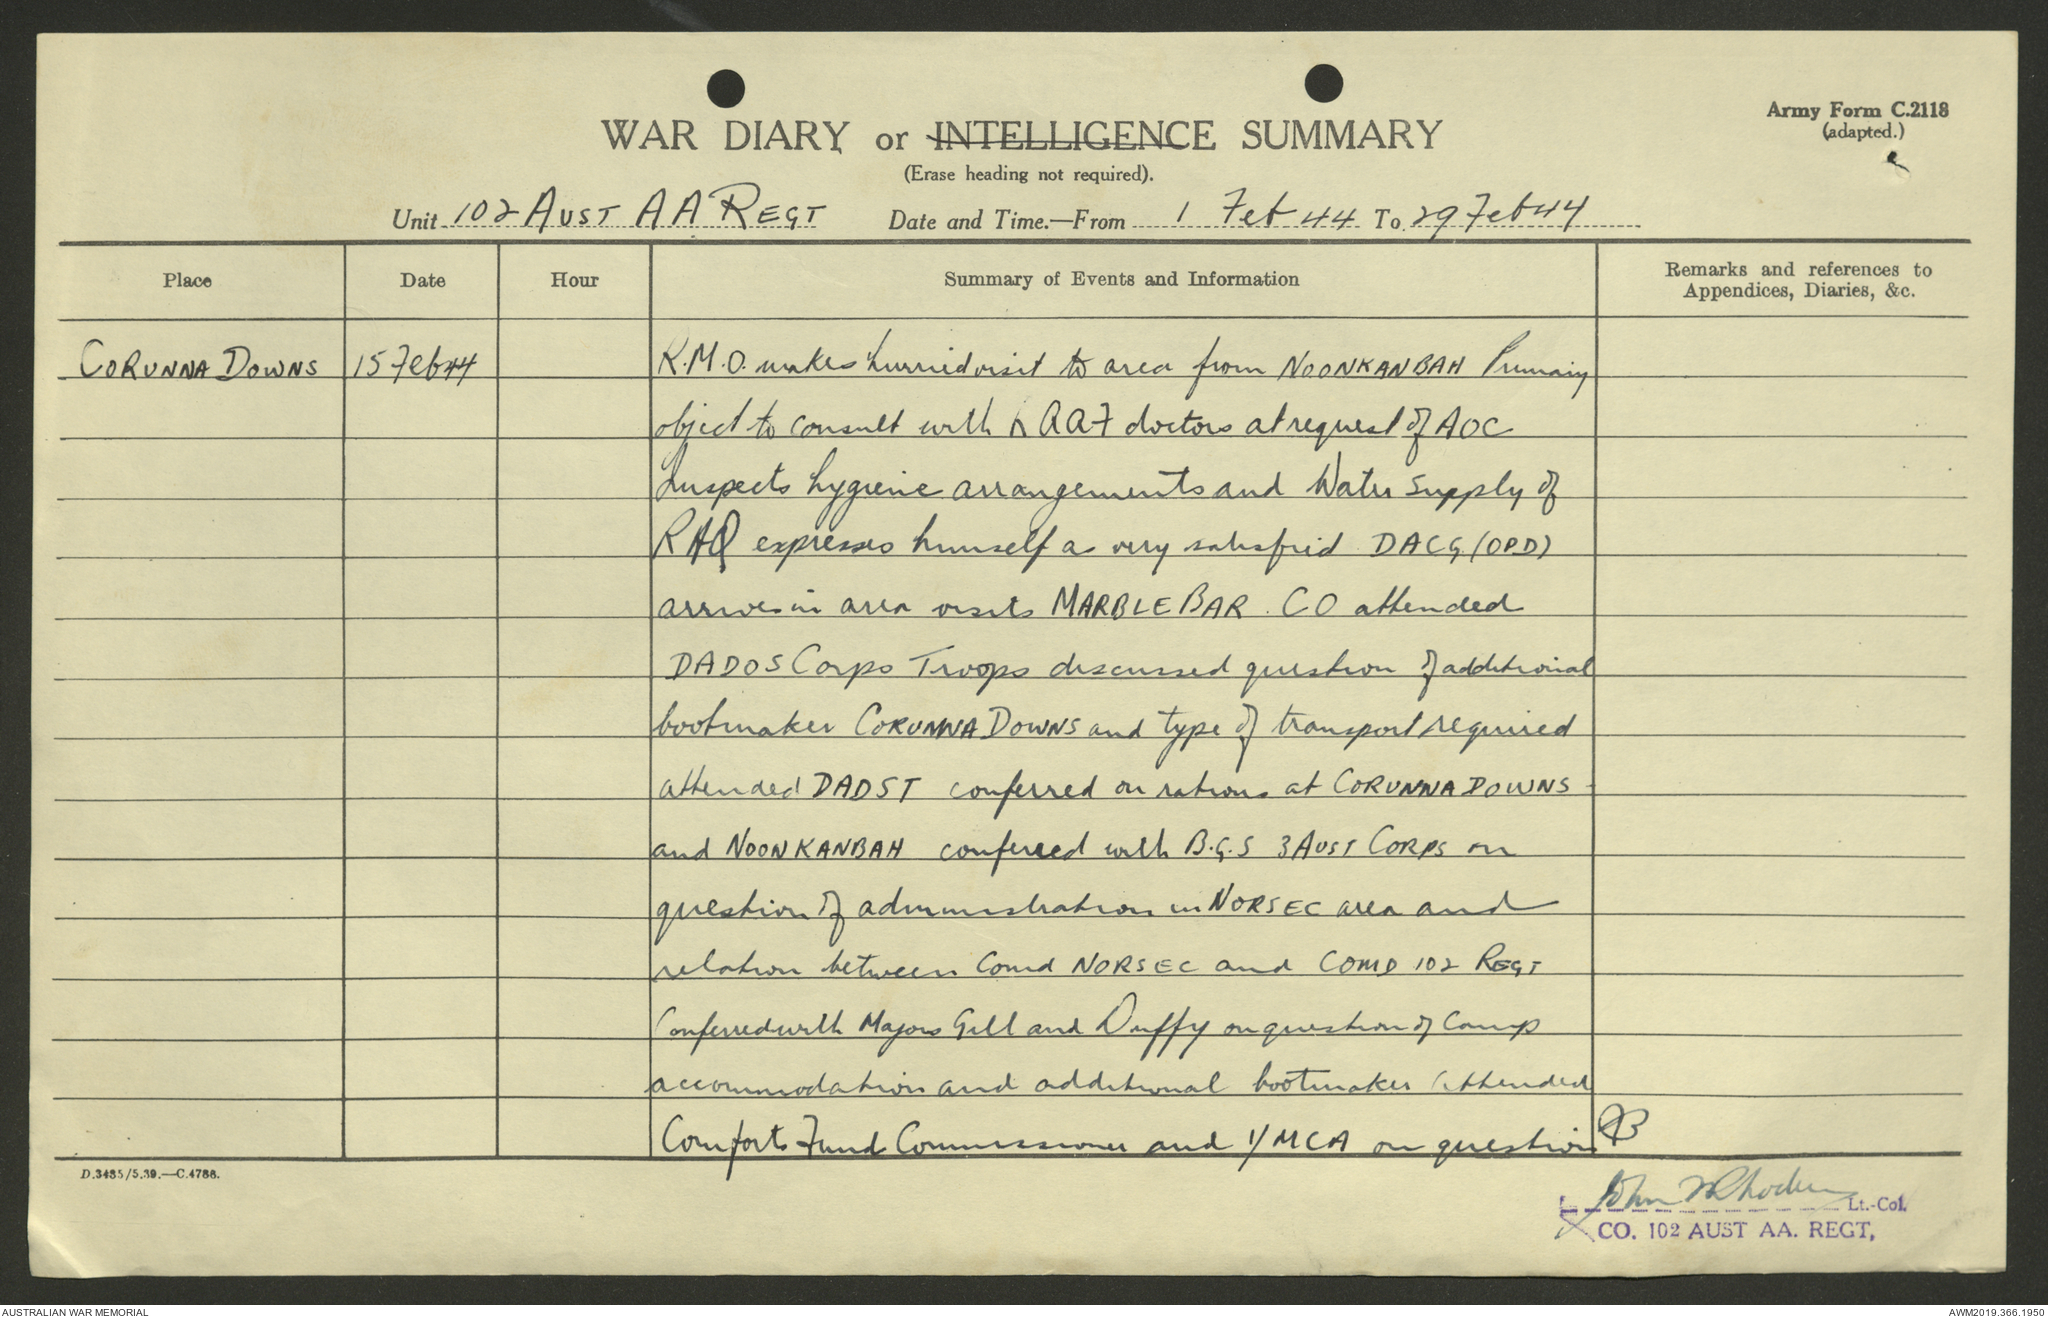 Army Form C.2118
(adapted.)
WAR DIARY or INTELLIGENCE SUMMARY
(Erase heading not required).
Unit 102 AUST AA REGT Date and Time.—From 1 Feb 44 To 29 Feb 44
Place Date Hour Summary of Events and Information Remarks and references to Appendices, Diaries, &c.
CORUNNA DOWNS 15 Feb 44 R.M.O. makes hurried visit to area from NOONKANBAH Primary
object to consult with RAAF doctors at request of AOC
Inspects hygiene arrangements and Water Supply of
RHQ expresses himself as very satisfied DACG (OPD)
arrives in area visits MARBLE BAR. CO attended
DADOS Corps Troops discussed question of additional
bootmaker CORUNNA DOWNS and type of transport required
attended DADST conferred on rations at CORUNNA DOWNS
and NOONKANBAH conferred with B.G.S 3 AUST CORPS on
question of administration in NORSEC area and
relation between Comd NORSEC and COMD 102 REGT
Conferred with Majors Gill and Duffy on question of camp
accommodation and additional bootmaker attended
Comforts Fund Commissioner and YMCA on question
D.3435/5.39.—C.4788.
Lt.-Col.
CO. 102 AUST AA. REGT,
AUSTRALIAN WAR MEMORIAL
AWM2019.366.1950